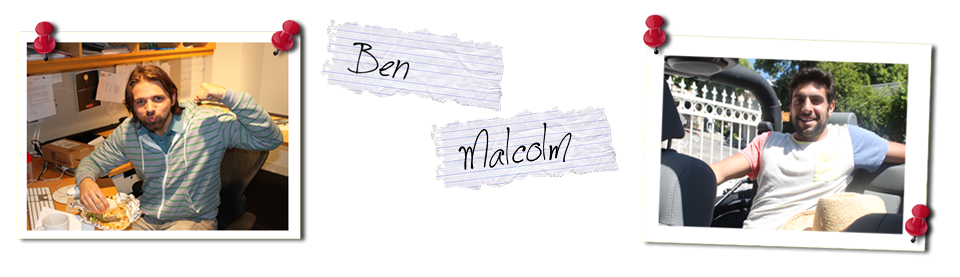 Ben
Malcolm